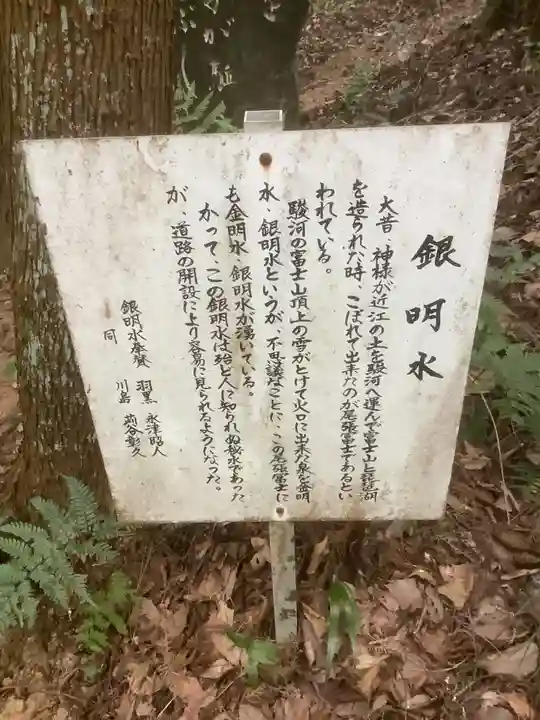 銀明水
大昔、神様が近江の土を駿河へ運んで富士山と琵琶湖
を造られた時、こぼれて出来たのが尾張富士であるとい
われている。
駿河の富士山頂上の雪がとけて火口に出来た泉を金明
水、銀明水というが、不思議なことに、この尾張富士に
も金明水、銀明水が湧いている。
かつて、この銀明水は殆ど人に知られぬ秘水であった
が、道路の開設により容易に見られるようになった。
銀明水奉賛 羽黒 永津昭人
同 川島 苅谷彰久